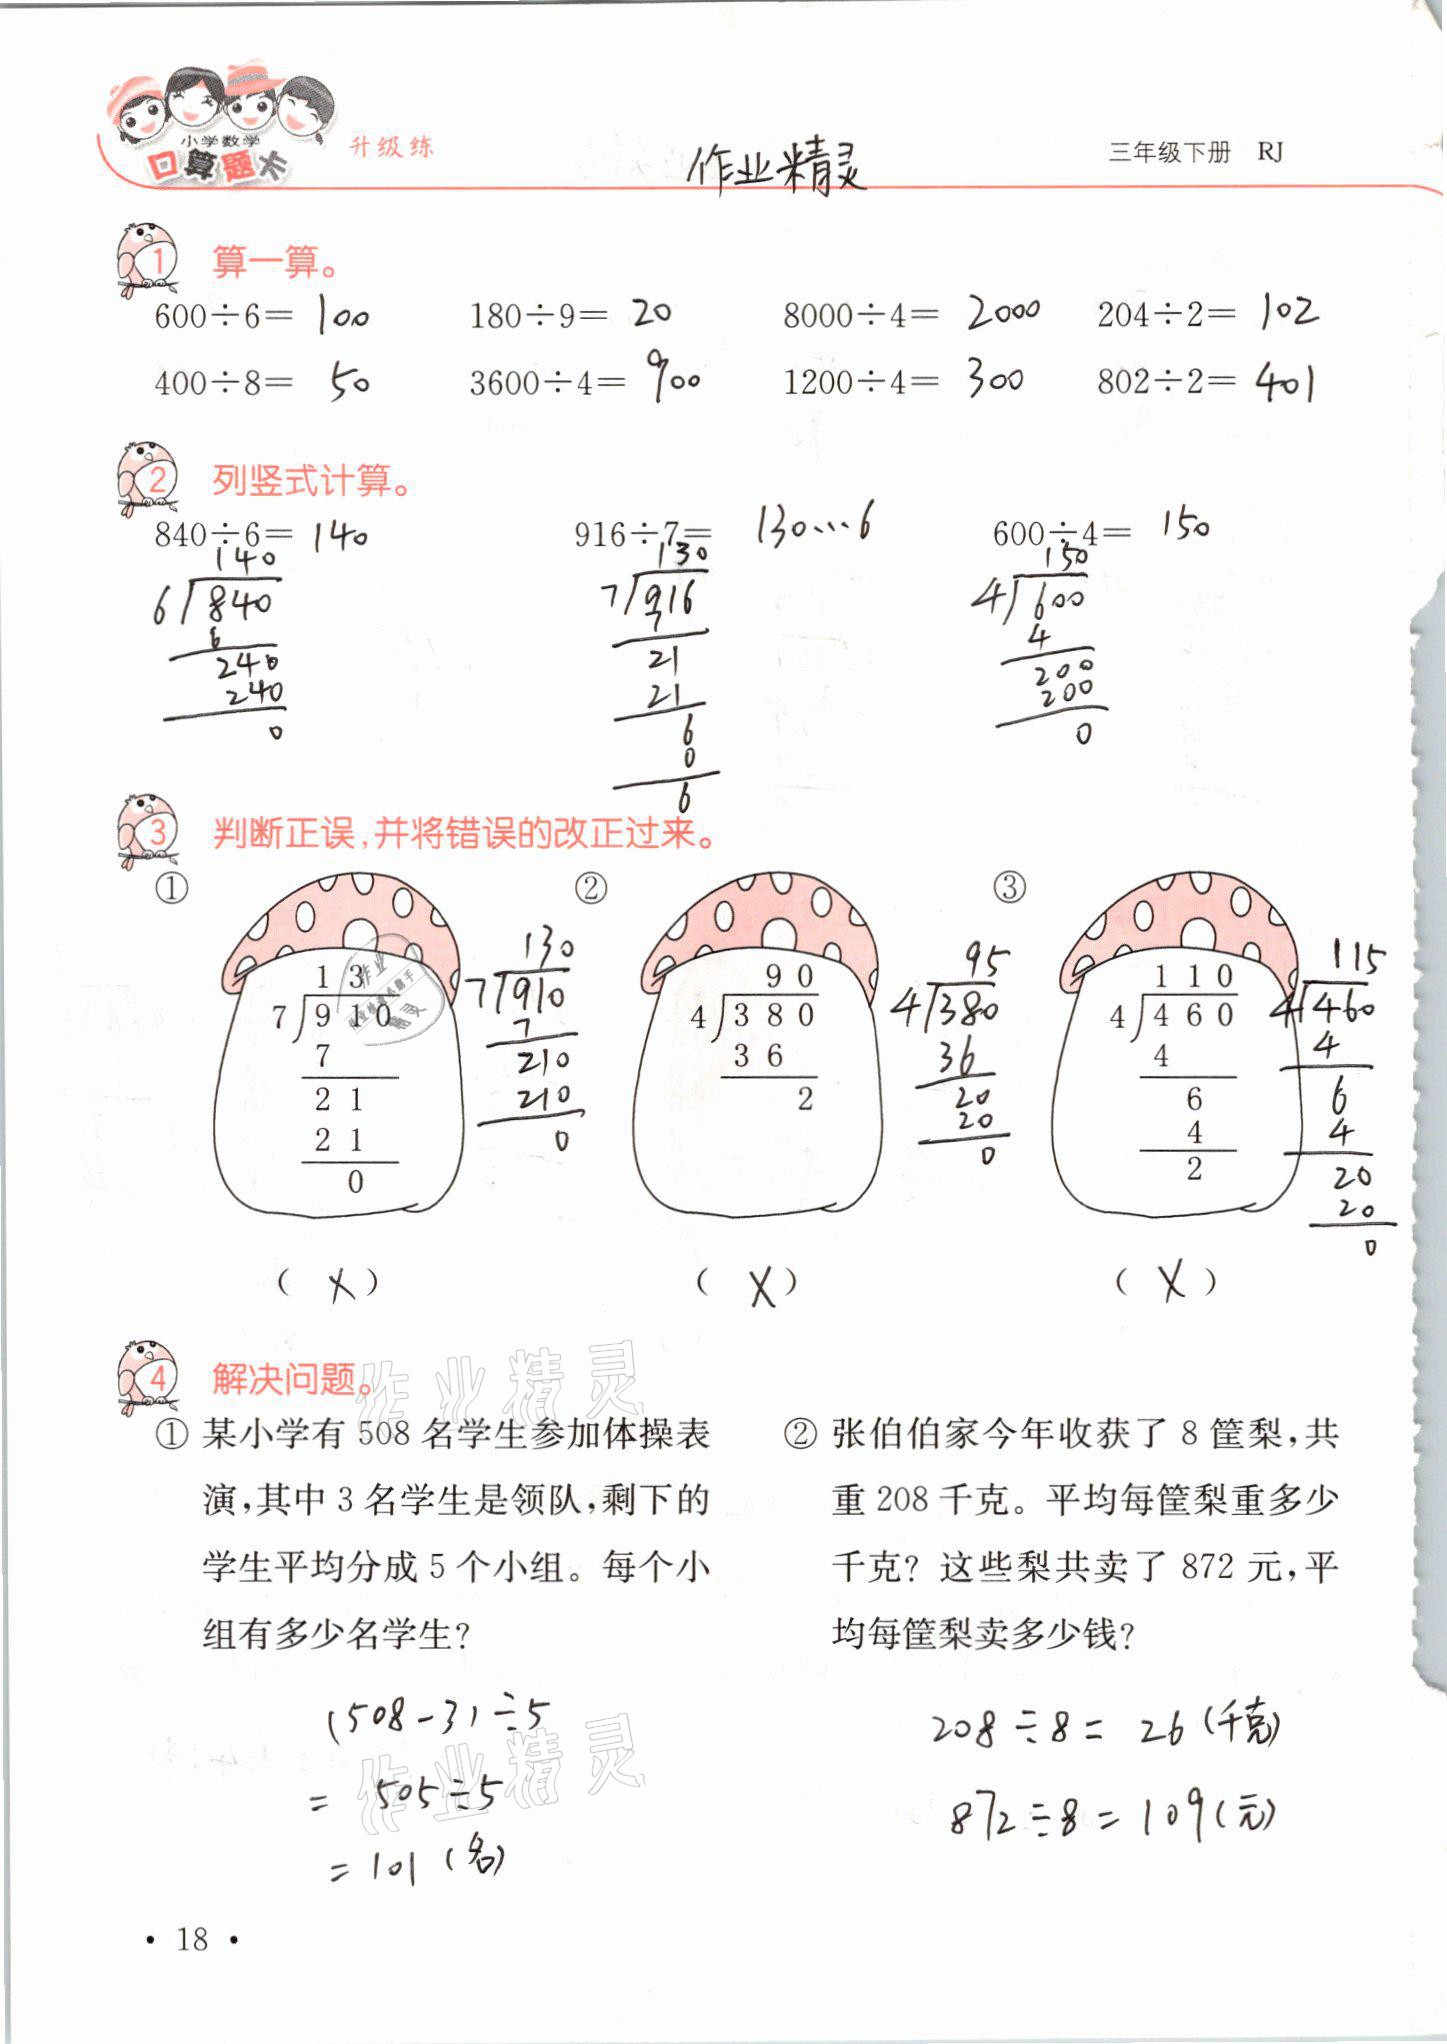 小学数学
口算题卡 升级练 作业精灵 三年级下册 RJ
1 算一算。
600÷6= 100 180÷9= 20 8000÷4= 2000 204÷2= 102
400÷8= 50 3600÷4= 900 1200÷4= 300 802÷2= 401
2 列竖式计算。
840÷6= 140 916÷7= 130…6 600÷4= 150
140 130 150
6 840 7 916 4 600
6 7 4
240 21 200
240 21 200
0 6 0
0
6
3 判断正误,并将错误的改正过来。
① ② ③
13 130 90 95 110 115
7 910 7 910 4 380 4 380 4 460 4 460
7 7 36 36 4 4
21 210 2 20 6 6
21 210 20 4 4
0 0 0 2 20
20
0
( X ) ( X ) ( X )
4 解决问题。
① 某小学有 508 名学生参加体操表
演,其中 3 名学生是领队,剩下的
学生平均分成 5 个小组。每个小
组有多少名学生?
(508-3)÷5
= 505÷5
=101(名)
② 张伯伯家今年收获了 8 筐梨,共
重 208 千克。平均每筐梨重多少
千克? 这些梨共卖了 872 元,平
均每筐梨卖多少钱?
208÷8= 26(千克)
872÷8=109(元)
作业精灵
作业精灵
• 18 •